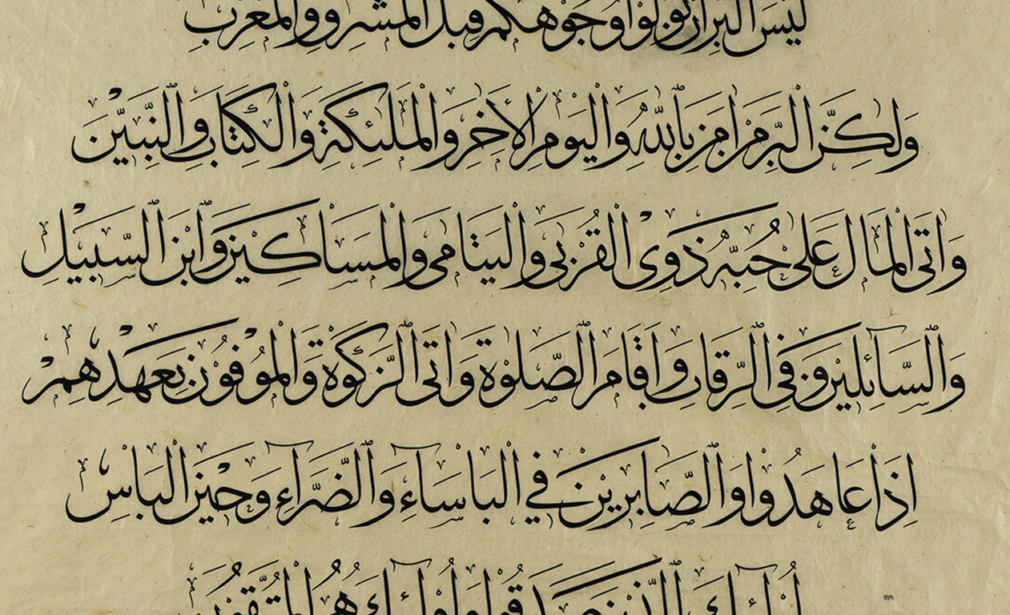 ليس البر ان تولوا وجوهكم قبل المشرق والمغرب
ولكن البر من امن بالله واليوم الأخر والملئكة والكتاب والنبين
واتى المال على حبه ذوى القربى واليتامى والمساكين وابن السبيل
والسائلين وفى الرقاب واقام الصلوة واتى الزكوة والموفون بعهدهم
اذا عاهدوا والصابرين في الباساء والضراء وحين الباس
اولئك الذين صدقوا واولئك هم المتقون